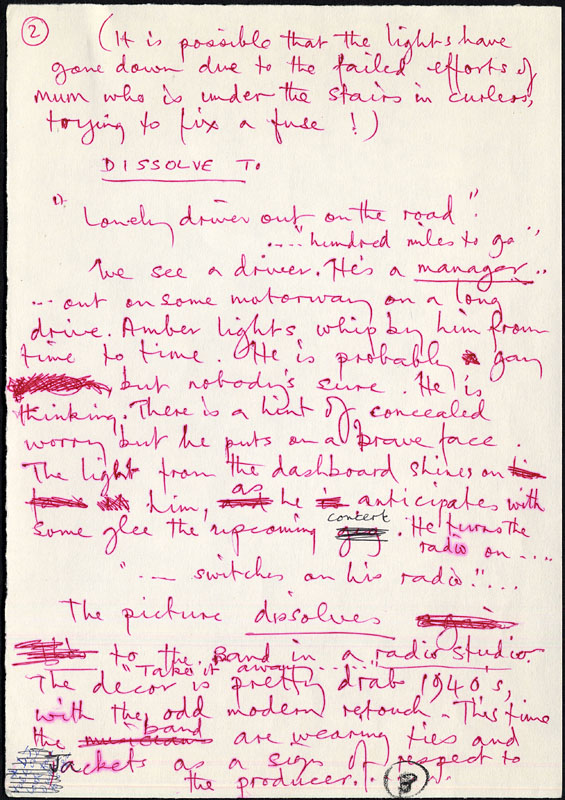 2
(It is possible that the lights have
gone down due to the failed efforts of
mum who is under the stairs in curlers,
trying to fix a fuse !)
DISSOLVE TO
"Lonely driver out on the road"
...."hundred miles to go"
We see a driver. He's a manager..
... out on some motorway on a long
drive. Amber lights whip by him from
time to time. He is probably gay
but nobody's sure. He is
thinking. There is a hint of concealed
worry but he puts on a brave face.
The light from the dashboard shines on
him, as he anticipates with
some glee the upcoming concert. He turns the
radio on.....
"— switches on his radio."...
The picture dissolves
to the Band in a radio studio.
"Take it away......
The decor is pretty drab 1940's,
with the odd modern retouch - This time
the band are wearing ties and
Jackets as a sign of respect to
the producer.